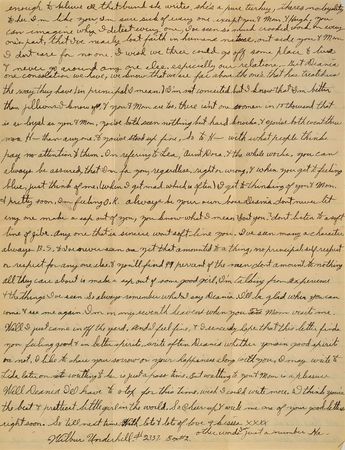 enough to believe all that bunk she writes, she's a poor turkey, there's no loyalty
to her. I'm like you I'm sure sick of every one except you & Mom & Hugh, you
can imagine why I detest every one, I've seen so much crooked work on every
one's part, that I've nearly lost faith in humans males, outside you & Mom
I don't care for no one. I wish we three could go off some place & live
& never go around any one else, especially our relations. But Deania
one consolation we have, we know that we're far above the one's that has treated us
the way they have in principal I mean. I'm not conceited but I know that I'm better
than fellows I know of, & you & Mom are too, there isn't one woman in a thousand that
is as loyal as you & Mom, you've both seen nothing but hard knocks, & you've both went thru
more H— than any one. & you've stood up fine, So to H— with what people think
pay no attention to them. I'm referring to Lea, Aunt Dora, & the whole works, you can
always be assured, that I'm for you, regardless right or wrong, & when you get to feeling
blue, just think of me, when I get mad which is often I get to thinking of you & Mom
& pretty soon, I'm feeling O.K. always be your own boss Deania don't never let
any one make a sap out of you, you know what I mean, & don't listen to a soft
line of jibe. Any one that is sincere won't soft line you. I've seen many a character
always B.S. & I've never seen one yet that amounted to a thing, no principal self respect
or respect for any one else, & you'll find 99 percent of the men don't amount to nothing
all they care about is make a sap out of some good girl, I'm talking from experience
& the things I've seen So always remember what I say Deania I'll be glad when you can
come & see me again. I'm in my seventh heaven when you & Mom visits me.
Well I just came in off the yard, and I feel fine, & I sincerely hope that this letter finds
you feeling good & in better spirits, write often Deania whether you're in good spirits
or not, I like to share your sorrow or your happiness along with you, I may write to
Lida later on, it's nothing to me is just a pass time, but writing to you & Mom is a pleasure
Well Deania I'll have to stop for this time, wish I could write more. I think you're
the best & prettiest little girl in the world, So cheer up & write me one of your good letters
right soon. So till next time, With lots & lots of love & kisses xxxx
Wilbur Underhill # 2337. Box 2. other words just a number Ha.